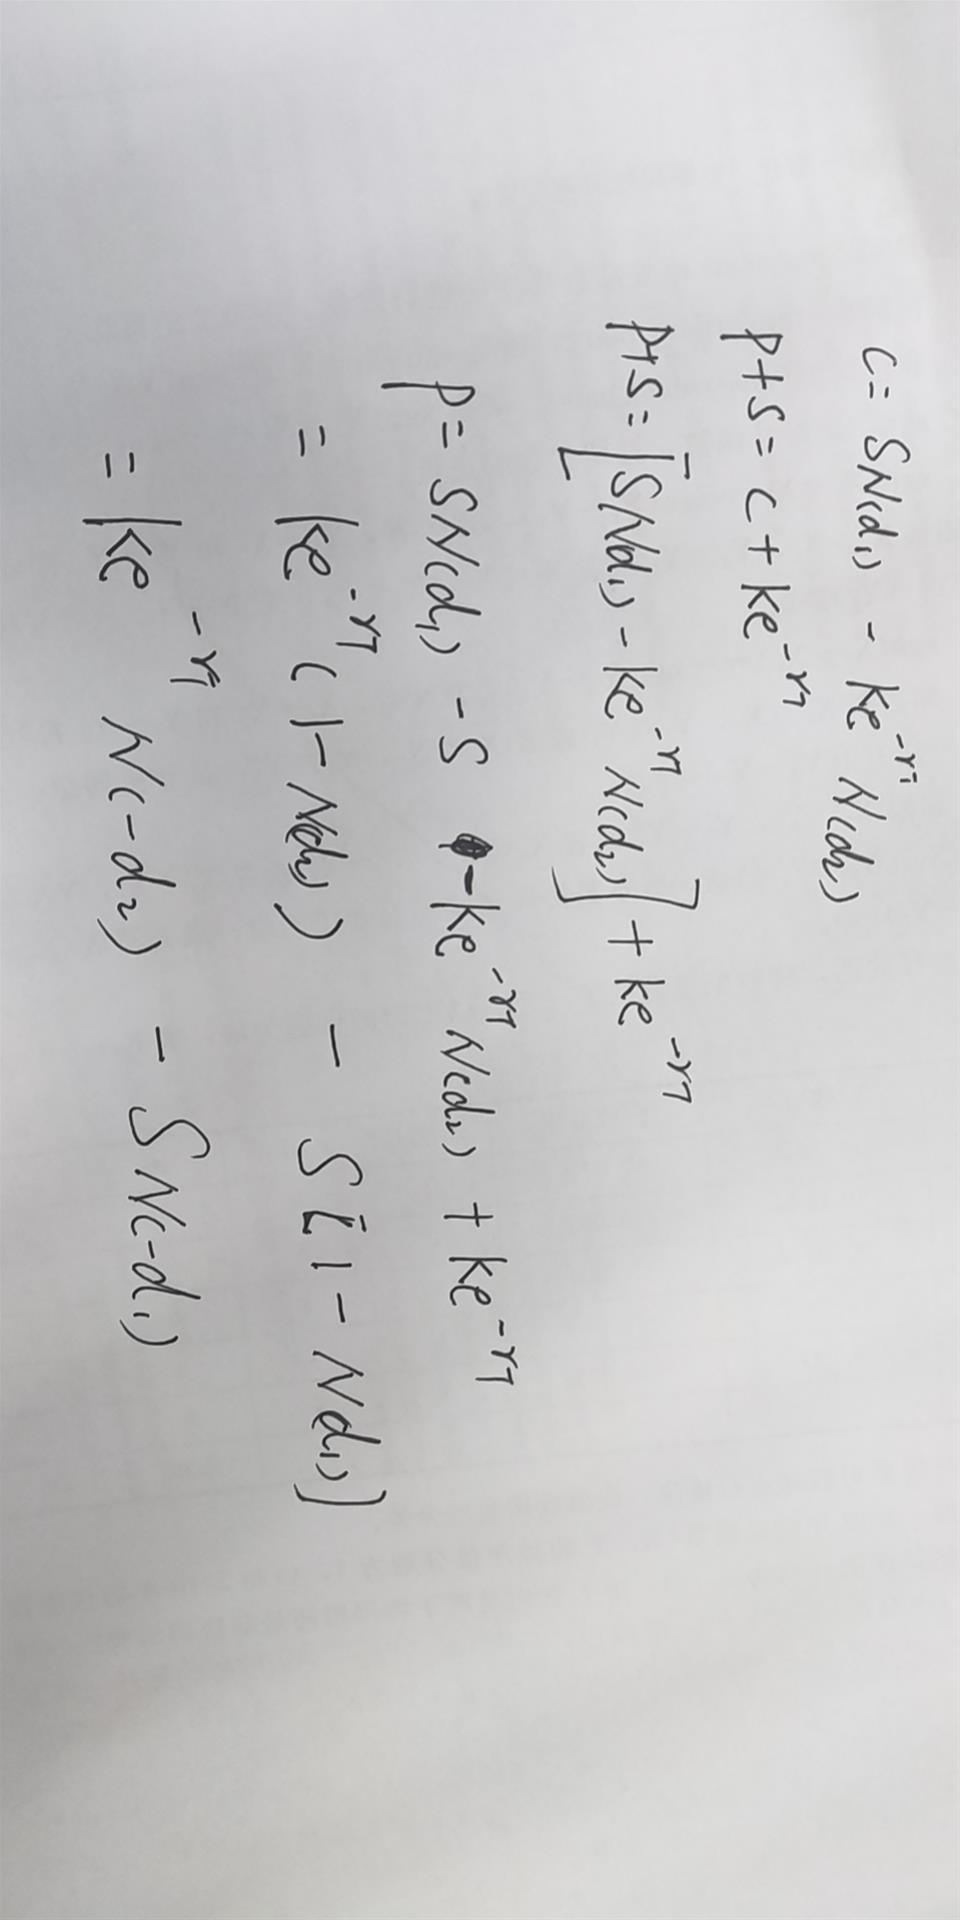 C = SN(d₁) - Ke^-rT N(d₂)
P+S = C + Ke^-rT
P+S = [SN(d₁) - Ke^-rT N(d₂)] + Ke^-rT
P = SN(d₁) - S - Ke^-rT N(d₂) + Ke^-rT
= Ke^-rT (1-N(d₂)) - S[1-N(d₁)]
= Ke^-rT N(-d₂) - SN(-d₁)